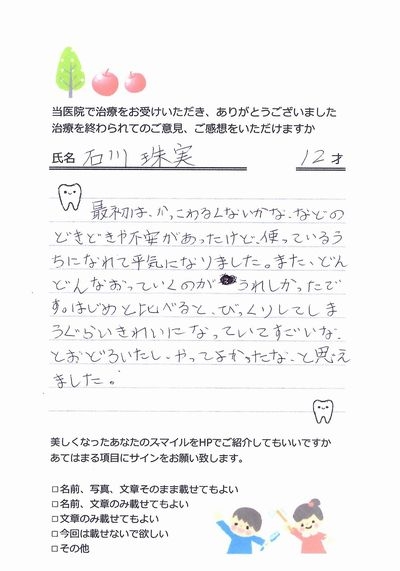 当医院で治療をお受けいただき、ありがとうございました
治療を終わられてのご意見、ご感想をいただけますか
氏名 石川 珠実 12才
最初は、かっこわるくないかな、などの
どきどきや不安があったけど、使っているう
ちになれて平気になりました。また、どん
どんなおっていくのがうれしかったで
す。はじめと比べると、びっくりしてしま
うぐらいきれいになっていてすごいな、
とおどろいたし、やってよかったな、と思え
ました。
美しくなったあなたのスマイルをHPでご紹介してもいいですか
あてはまる項目にサインをお願い致します。
□名前、写真、文章そのまま載せてもよい
□名前、文章のみ載せてもよい
□文章のみ載せてもよい
□今回は載せないで欲しい
□その他